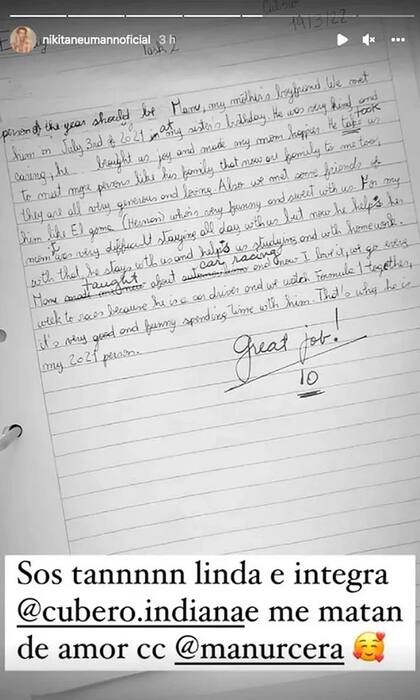 nikitaneumannoficial 3 h
19/3/22
Task 2
person of the year should be Manu, my mother's boyfriend. We met
him in July 3rd of 2021 in at my sister's birthday. He was very kind and
caring, he brought us joy and made my mom happier. He take took us
to meet more persons like his family that now are family to me too,
they are all very generous and loving. Also we met some friends of
him like El gome (Hernan) who's very funny and sweet with us. For my
mom it was very difficult staying all day with us but now he help's her
with that, he stays with us and help's us studying and with homework.
Manu taught about car racing and now I love it, we go every
week to races because he is a car driver and we watch Formula 1 together,
it's very good and funny spending time with him. That's why he is
my 2021 person.
Great job!
10
Sos tannnnn linda e integra
@cubero.indianae me matan
de amor cc @manurcera 🥰